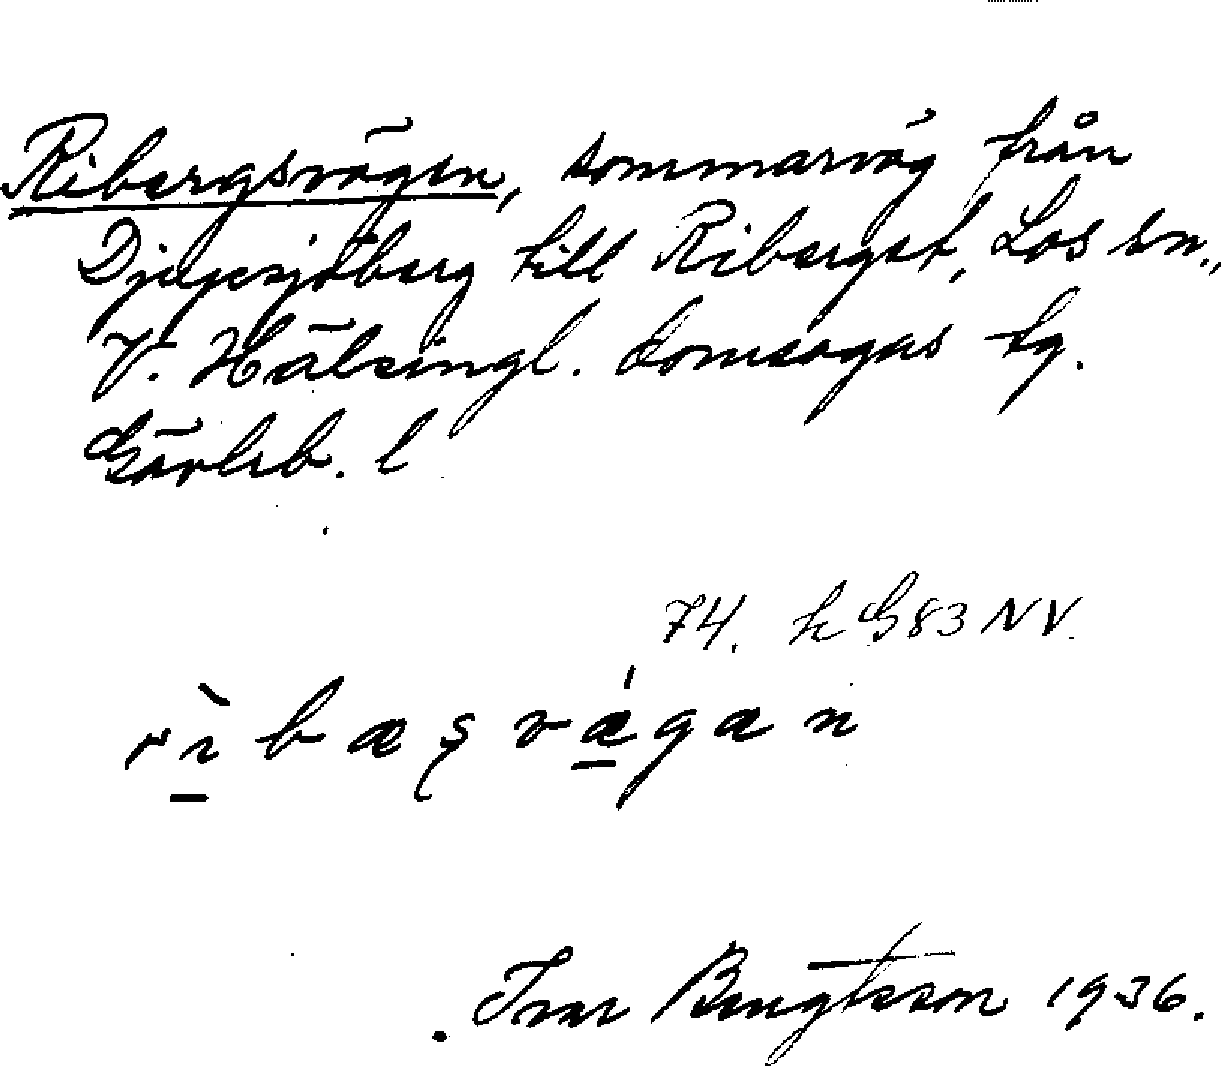 Ribergsvägen, sommarväg från
Djupsjöberg till Riberget, Los sn.,
V. Hälsingl. domsagas tg.
Gävleb. l
74. k G83 NV.
rìbæʂvǽgæn
Ivar Bengtsson 1936.